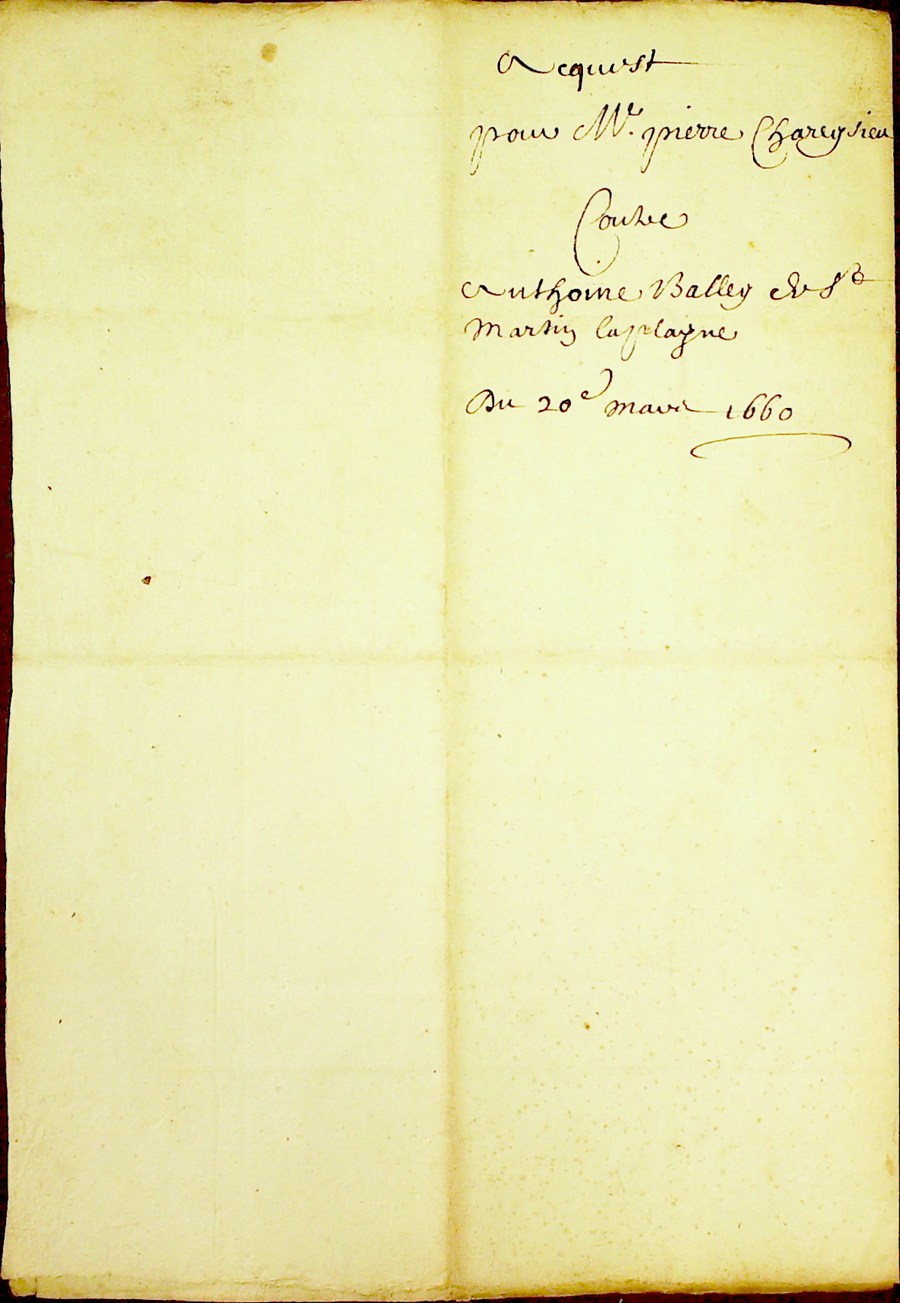 Acquist
pour Mr. pierre Chareysieu
Contre
Anthoine Balley de St
Martin laplagne
Du 20e mars 1660